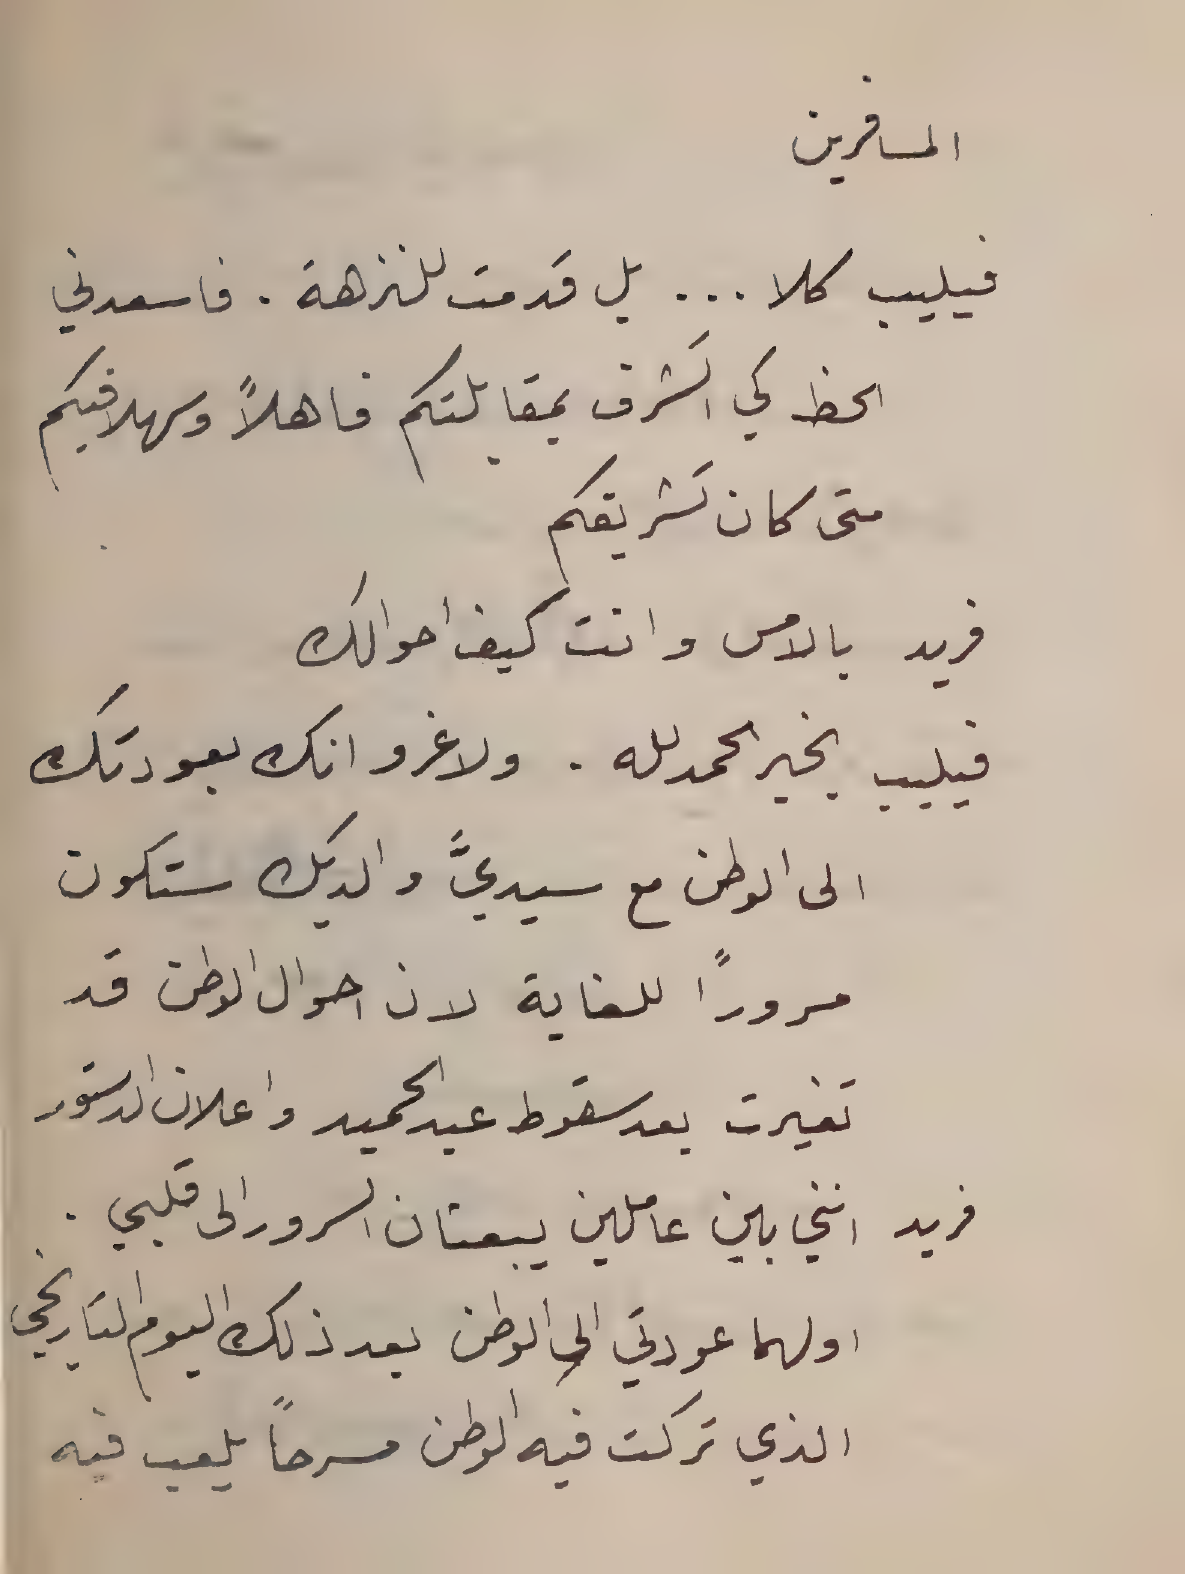 المسافرين
فيليب كلا ... بل قدمت للنزهة . فاسعدني
الحظ كي اتشرف بمقابلتكم فاهلاً وسهلا فيكم
متى كان تشريفكم
فريد بالامس وانت كيف احوالك
فيليب بخير الحمد لله . ولا غرو انك بعودتك
الى الوطن مع سيديَّ والديك ستكون
مسروراً للغاية لان احوال الوطن قد
تغيرت بعد سقوط عبد الحميد واعلان الدستور
فريد انني بين عاملين يبعثان السرور الى قلبي .
اولهما عودتي الى الوطن بعد ذلك اليوم التاريخي
الذي تركت فيه الوطن مسرحاً يلعب فيه